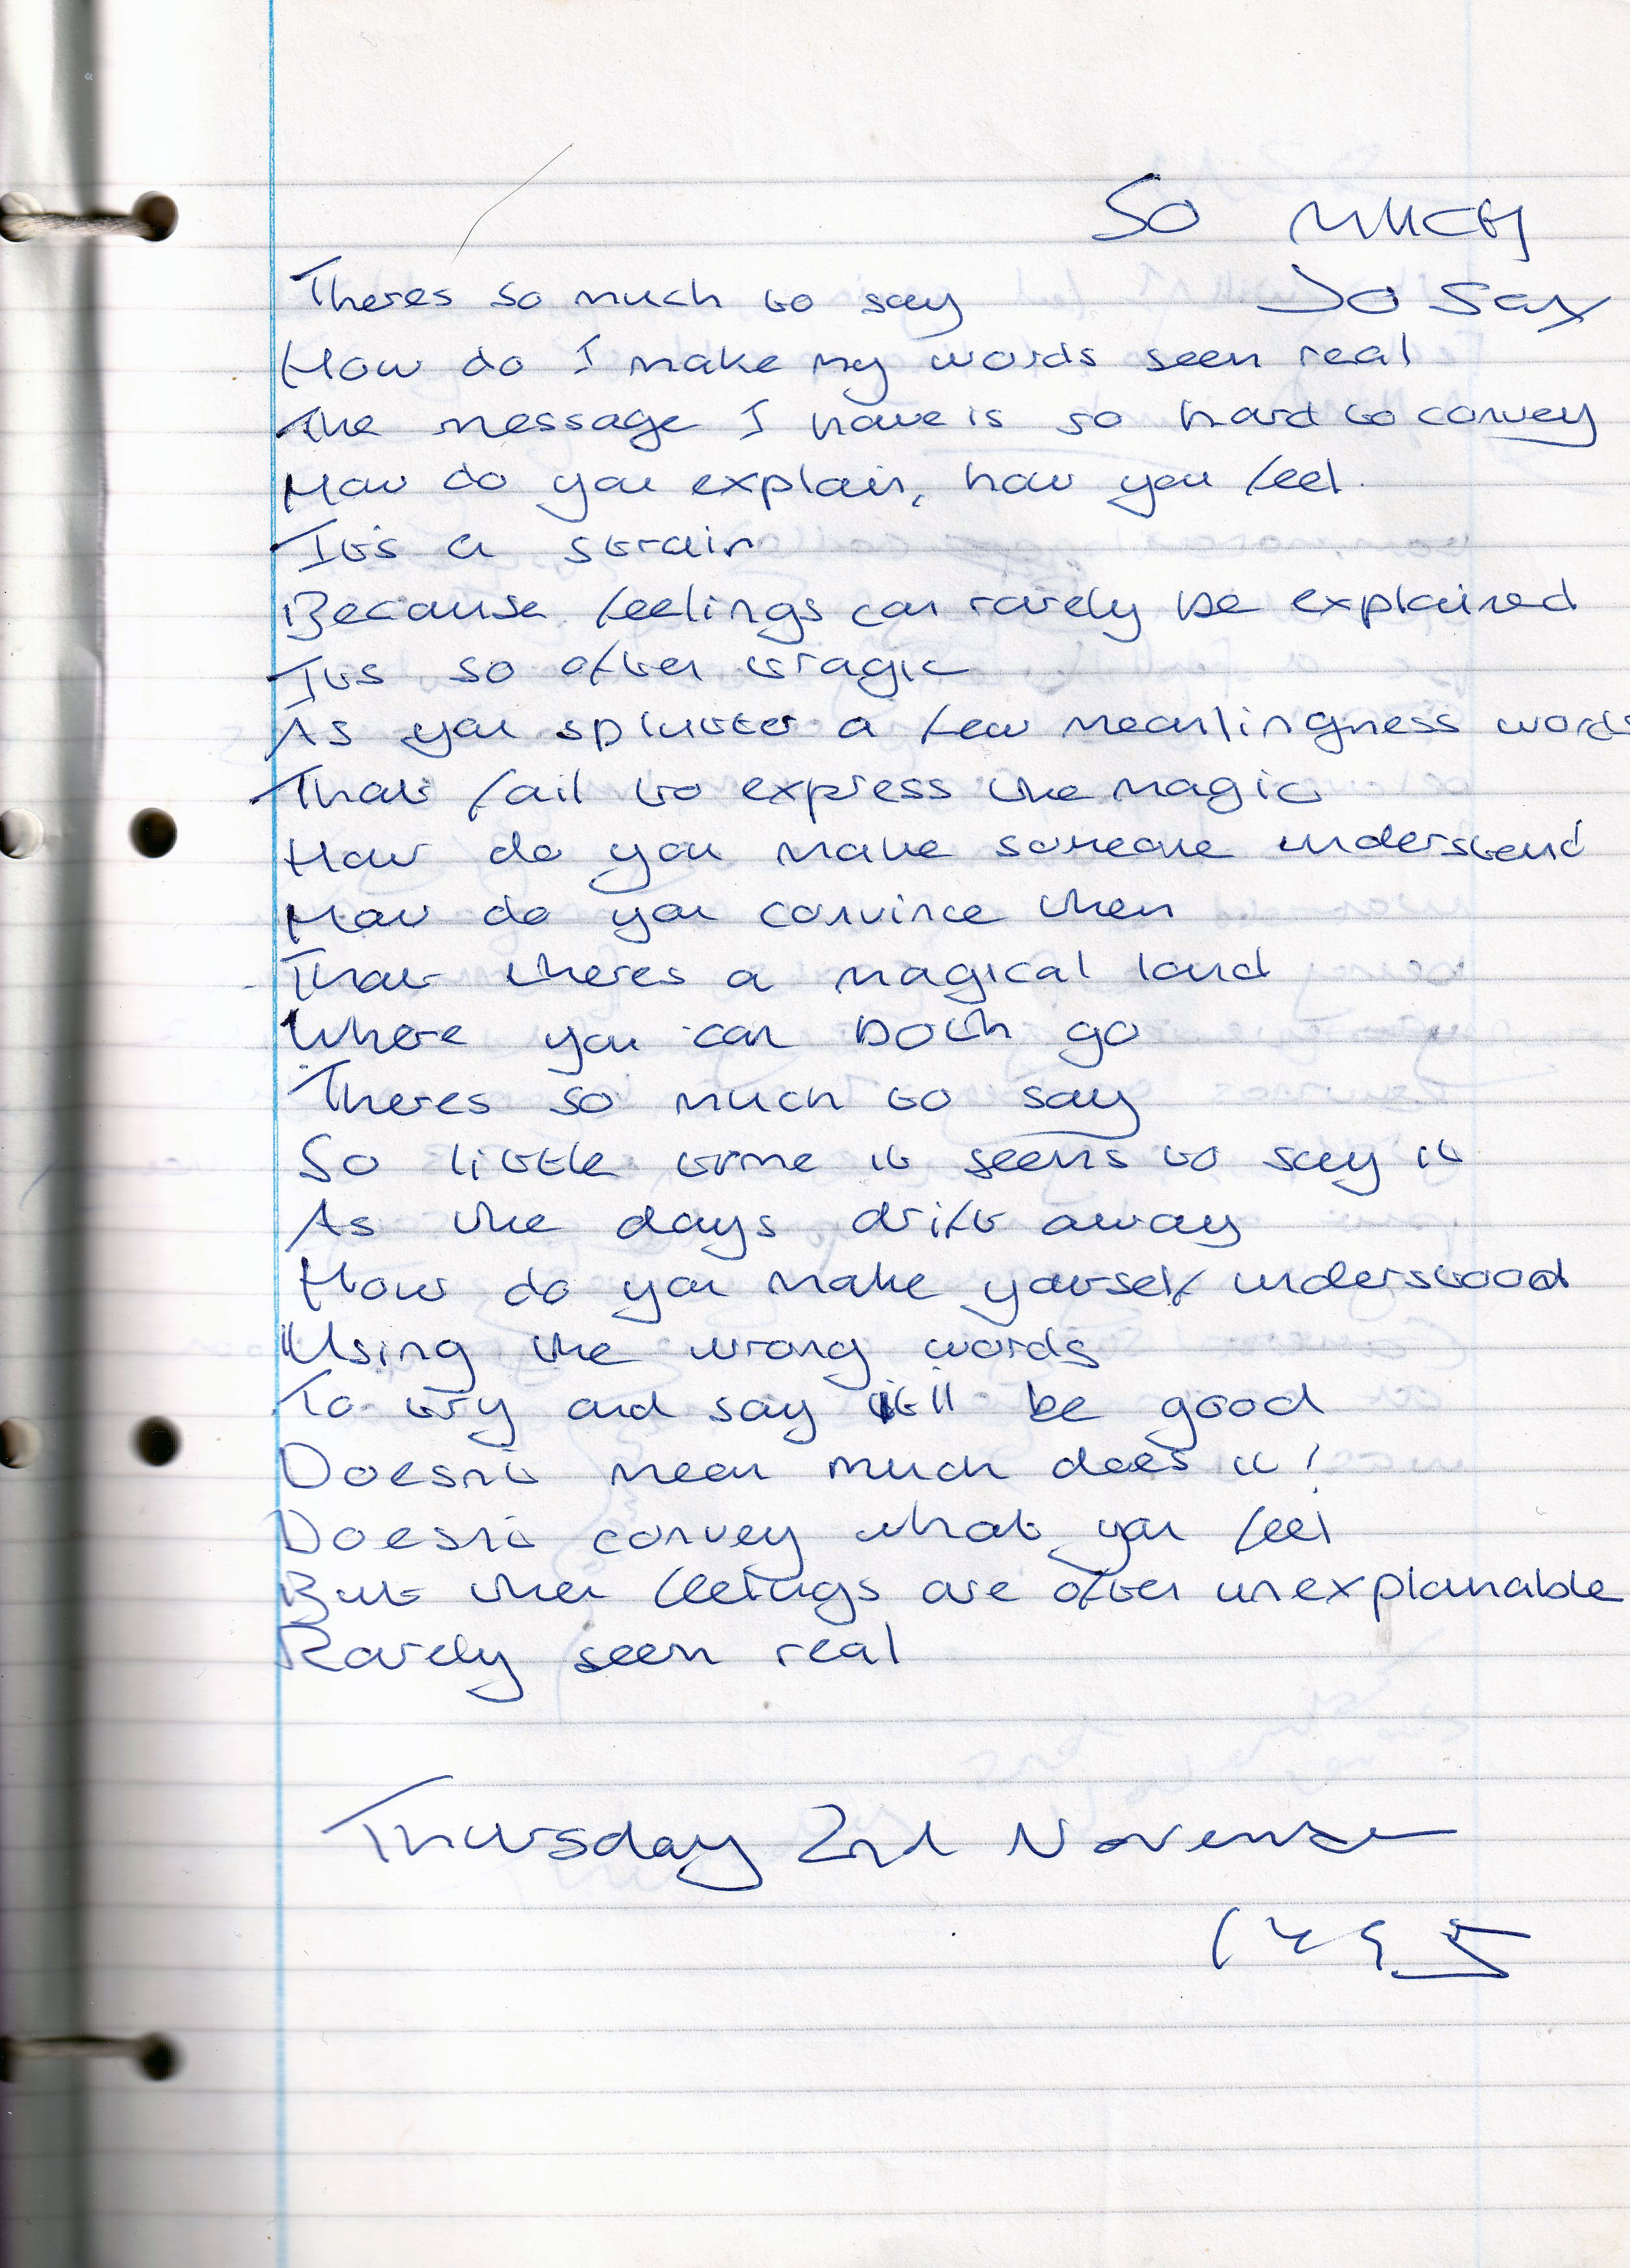 SO MUCH
TO SAY
Theres so much to say
How do I make my words seem real
The message I have is so hard to convey
How do you explain, how you feel
Its a strain
Because feelings can rarely be explained
Its so often tragic
As you splutter a few meaningness words
That fail to express the magic
How do you make someone understand
How do you convince them
That theres a magical land
Where you can both go
Theres so much to say
So little time it seems to say it
As the days drift away
How do you make yourself understood
Using the wrong words
To try and say it'll be good
Doesnt mean much does it!
Doesnt convey what you feel
But then feelings are often unexplanable
Rarely seem real
Thursday 2nd November
1995